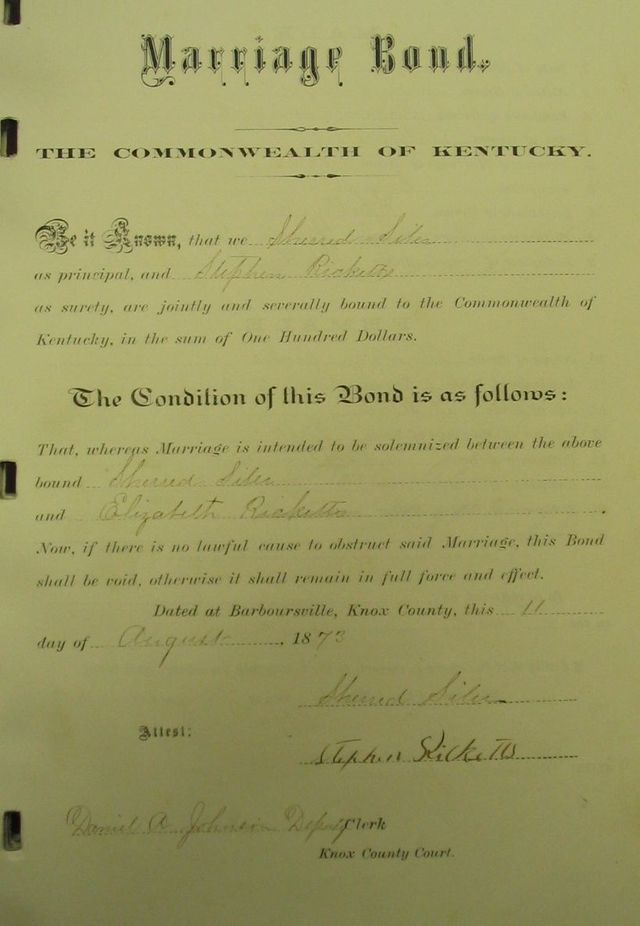 Marriage Bond.
THE COMMONWEALTH OF KENTUCKY.
Be it Known, that we Sherred Siler
as principal, and Stephen Ricketts
as surety, are jointly and severally bound to the Commonwealth of
Kentucky, in the sum of One Hundred Dollars.
The Condition of this Bond is as follows:
That, whereas Marriage is intended to be solemnized between the above
bound Sherred Siler
and Elizabeth Ricketts.
Now, if there is no lawful cause to obstruct said Marriage, this Bond
shall be void, otherwise it shall remain in full force and effect.
Dated at Barboursville, Knox County, this 11
day of August, 1873
Sherred Siler
Attest:
Stephen Ricketts
Daniel A. Johnson Deputy Clerk
Knox County Court.